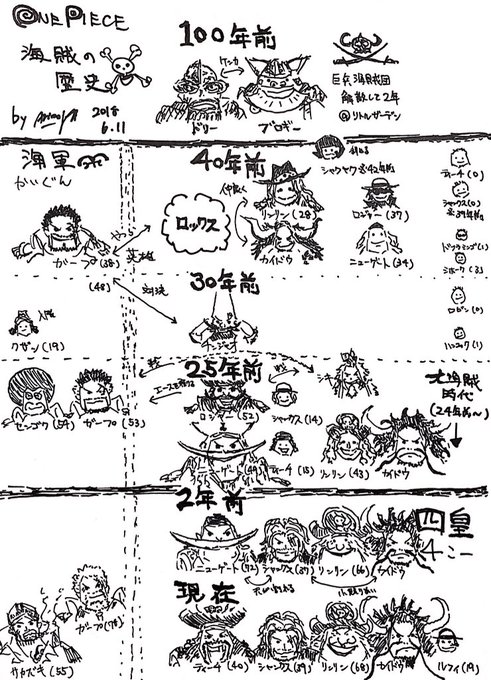 ONE PIECE
海賊の
歴史
by
2018
6.11
100年前
ケンカ
ドリー
ブロギー
巨兵海賊団
解散して2年
@リトルガーデン
海軍
かいぐん
40年前
シャクヤク
42年前
ロックス
仲悪く
リンリン(28)
カイドウ
ロジャー(37)
ニューゲート(34)
ティーチ(0)
シャンクス(0)
39年前
ドフラミンゴ(1)
ミホーク(3)
やっつ
英雄
ガープ(38)
(48)
対決
30年前
チンジャオ
入隊
クザン(19)
ロビン(0)
ハンコック(1)
25年前
戦
エースを頼む
センゴク(54)
ガープ(53)
ロジャー(52)
シャンクス(14)
シキ
ニューゲート(49)
ティーチ(15)
リンリン(43)
カイドウ
大海賊
時代
(24年前〜)
2年前
ニューゲート(72)
シャンクス(37)
リンリン(66)
カイドウ
四皇
4こー
現在
ガープ(78)
サカズキ(55)
ティーチ(40)
シャンクス(39)
リンリン(68)
カイドウ
ルフィ(19)